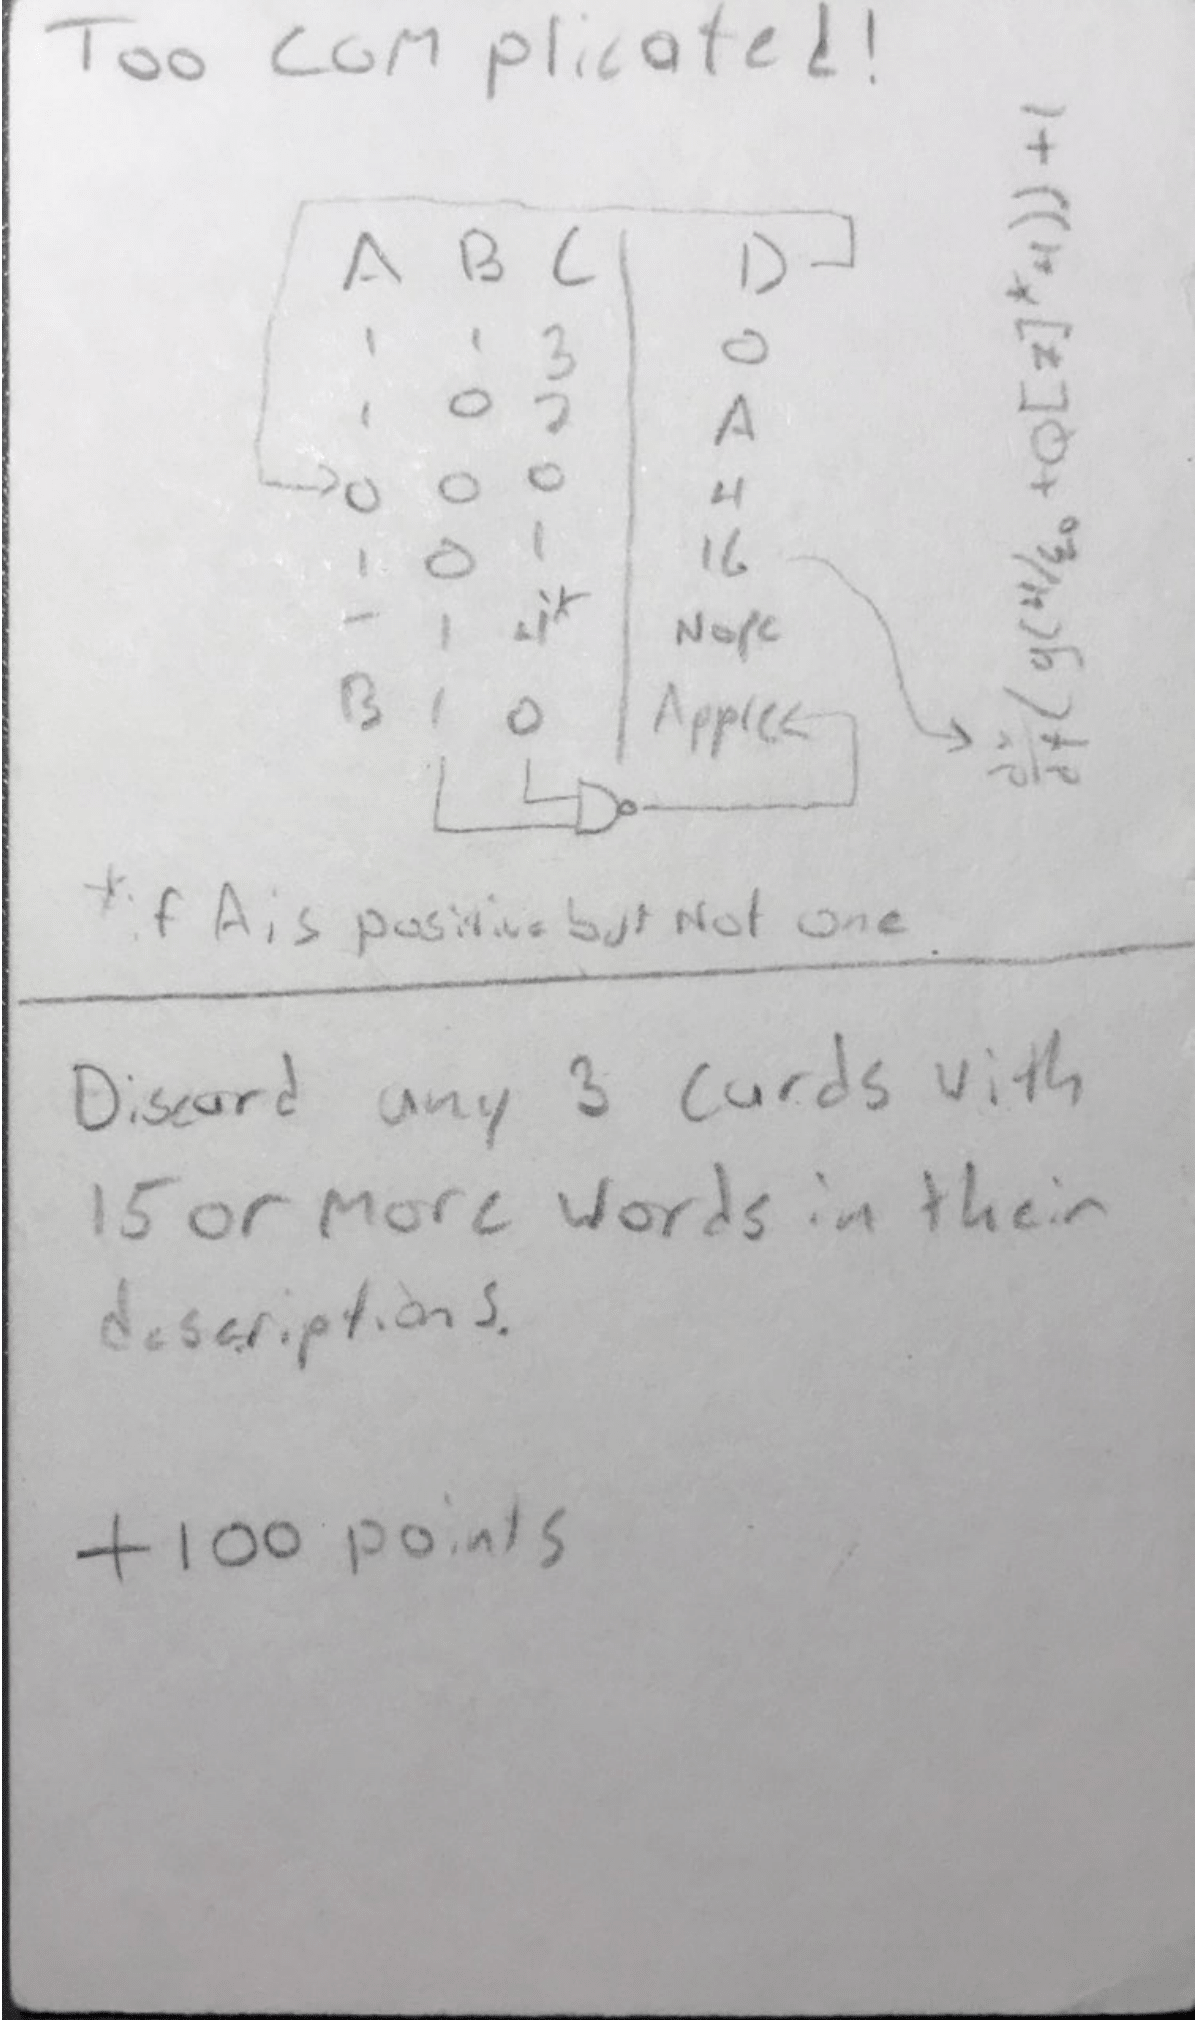 Too complicated!
A B C | D
1 1 3 | 0
1 0 2 | A
0 0 0 | 4
1 0 1 | 16
- 1 4* | Nope
B 1 0 | Apple
*if A is positive but Not one
Discard any 3 cards with
15 or more words in their
descriptions.
+100 points